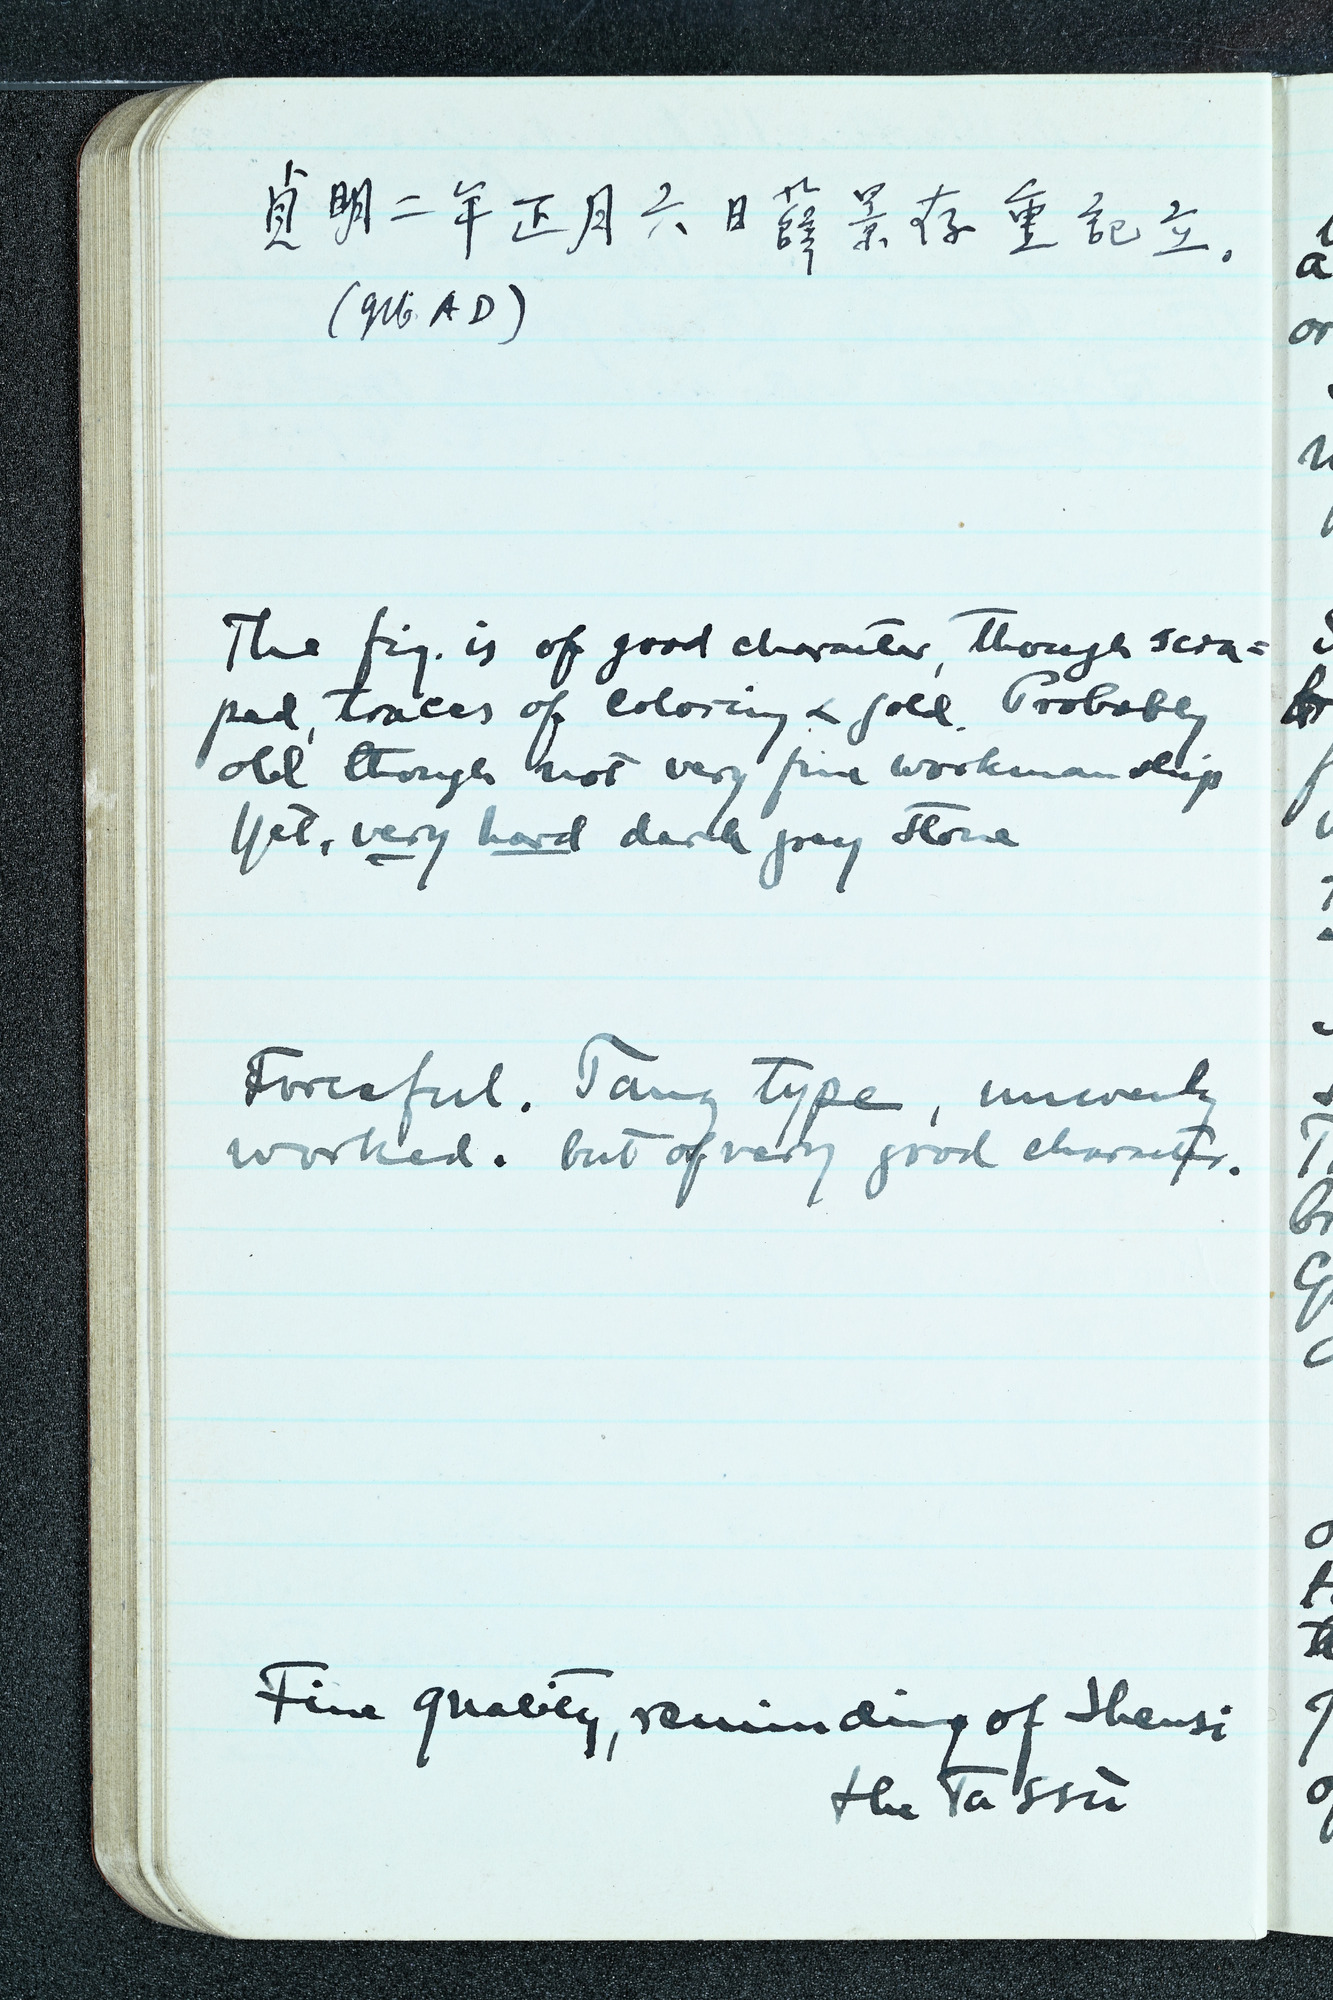 貞明二年正月六日薛景存重記立.
(916 AD)
The fig. is of good character, though scra=
ped, traces of coloring & gold. Probably
old though not very fine workmanship
Yet, very hard dark grey stone
Forceful. Tang type, unevenly
worked. but of very good character.
Fine quality, reminding of Shensi
the Ta Ssŭ